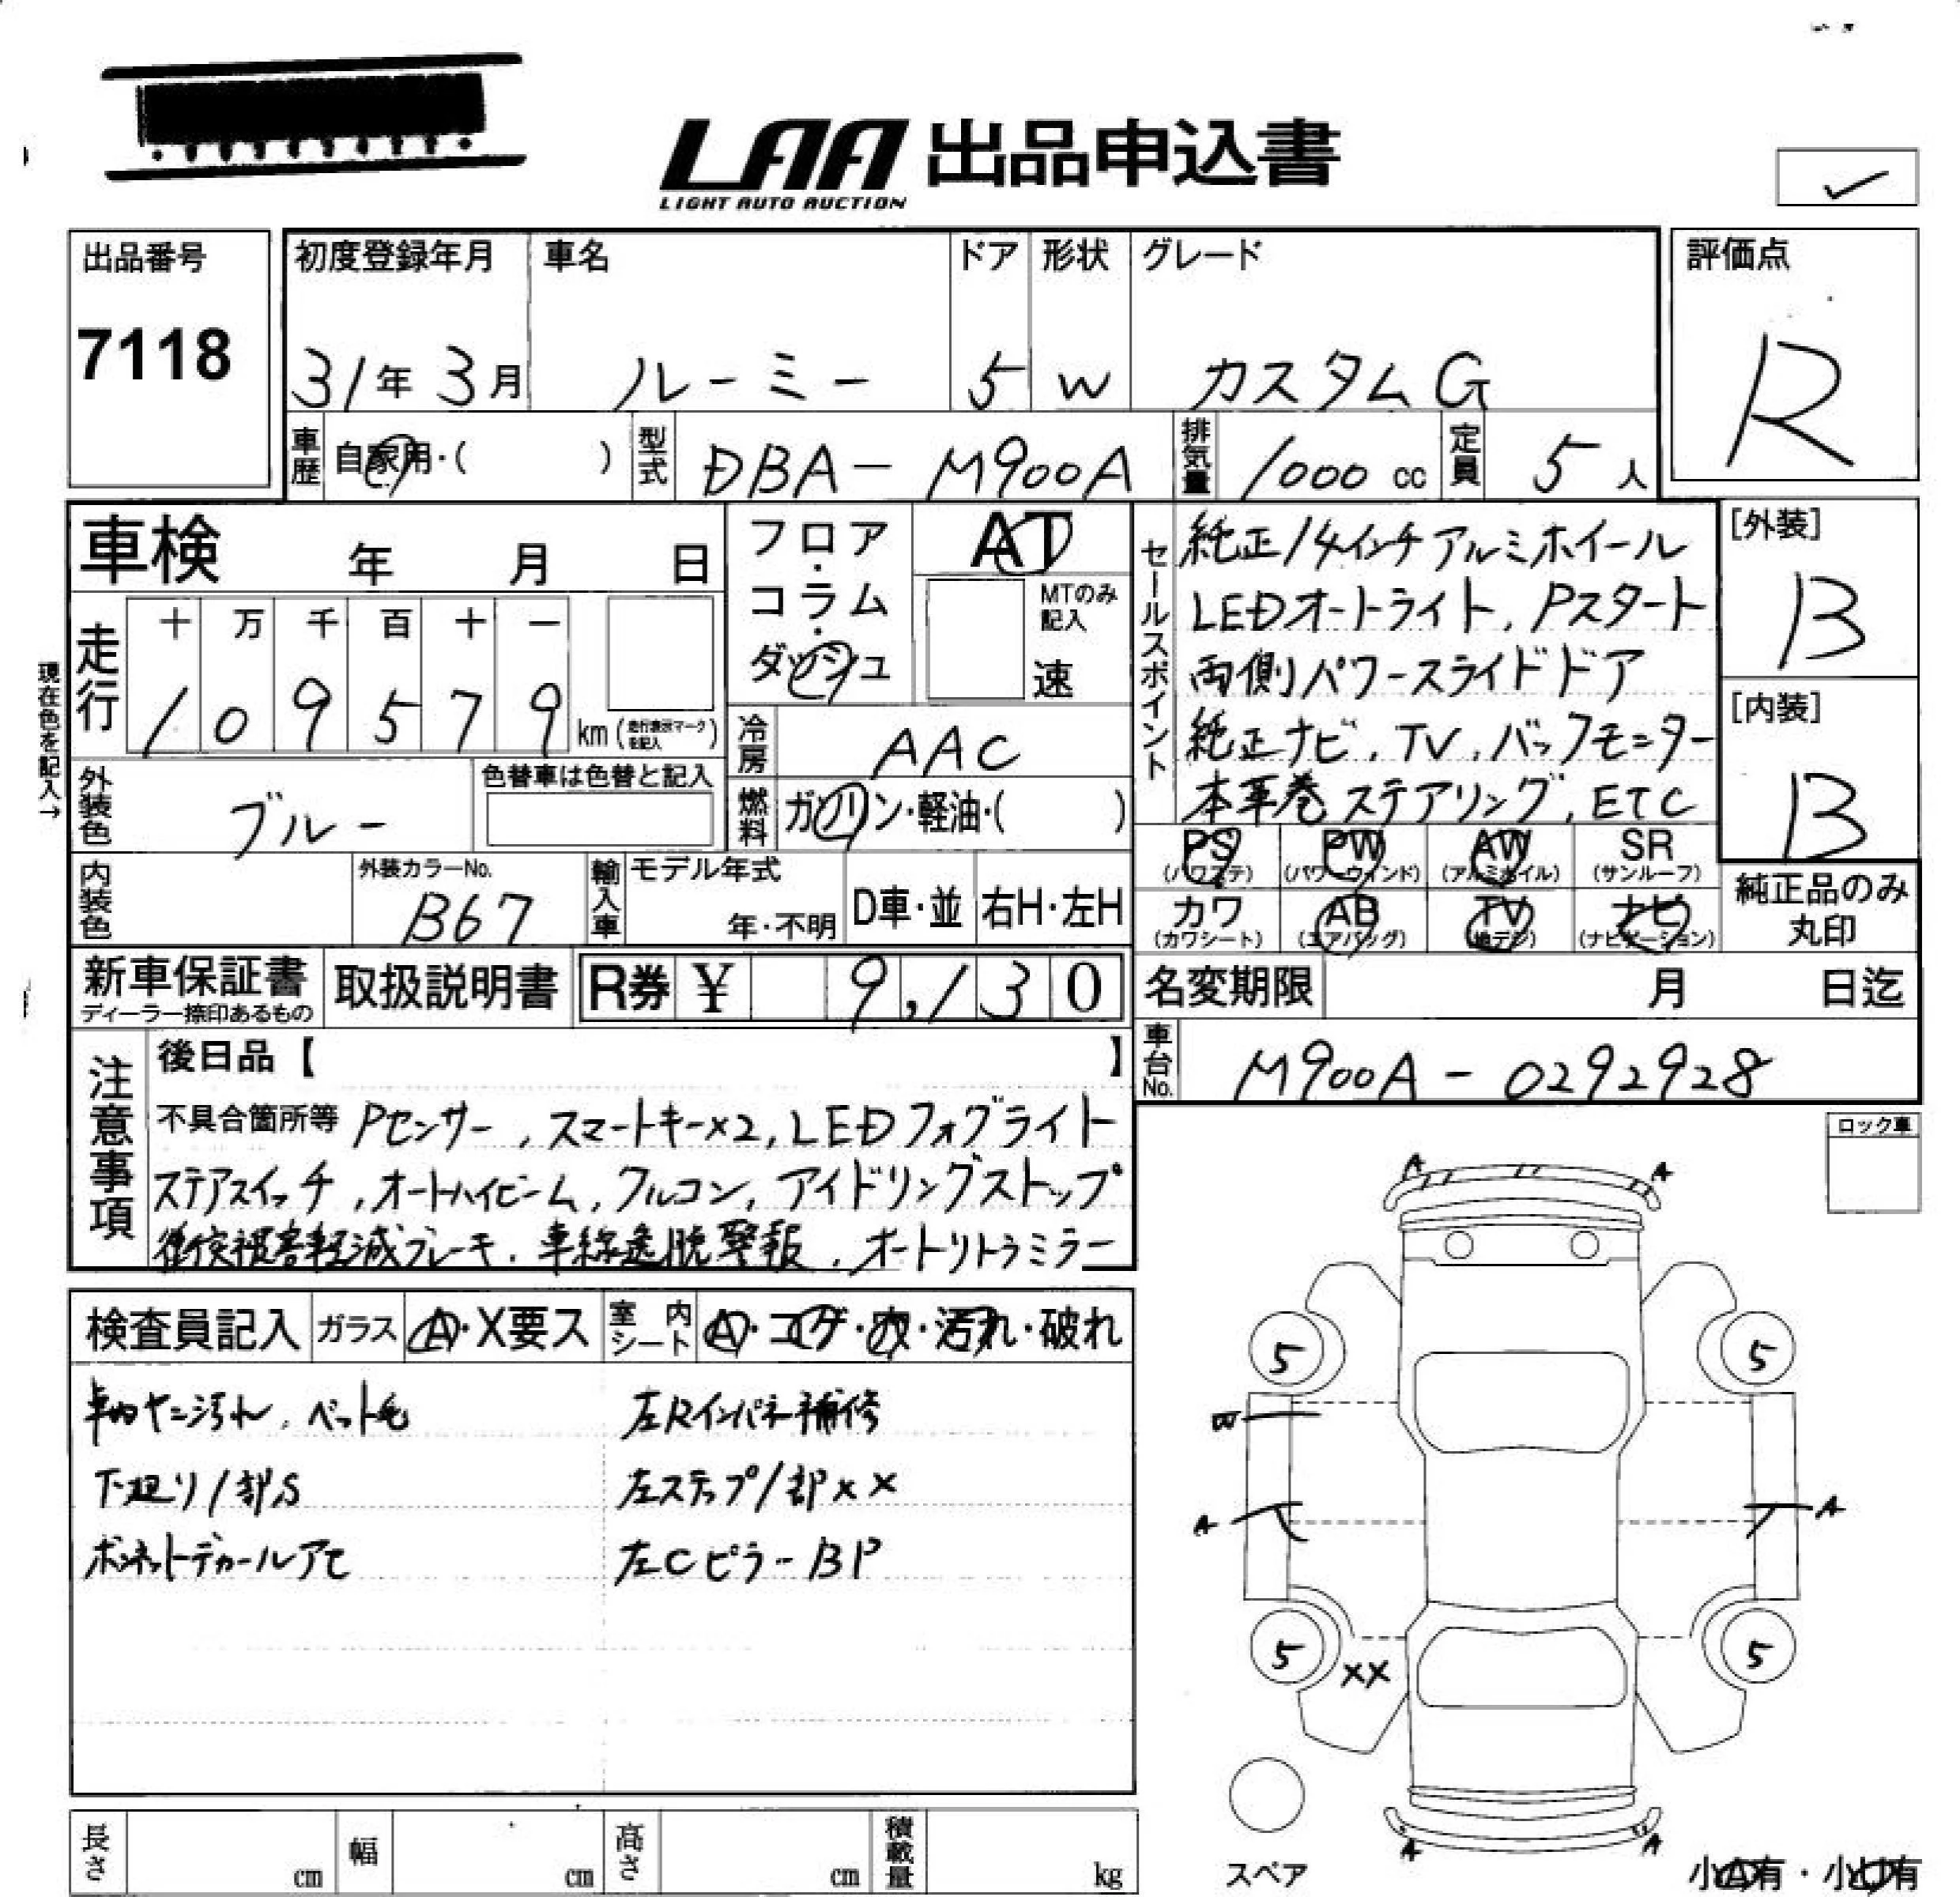 LAA 出品申込書
LIGHT AUTO AUCTION
出品番号
7118
初度登録年月
31年3月
車名
ルーミー
ドア
5
形状
W
グレード
カスタムG
評価点
R
車歴
自家用・( )
型式
DBA-M900A
排気量
1000 cc
定員
5人
車検 年 月 日
フロア・コラム・ダッシュ
AT
MTのみ記入
速
セールスポイント
純正14インチアルミホイール
LEDオートライト, Pスタート
両側パワースライドドア
純正ナビ, TV, バックモニター
本革巻ステアリング, ETC
[外装]
B
[内装]
B
現在色を記入→
走行
十 万 千 百 十 一
1 0 9 5 7 9 km (走行表示マークを記入)
冷房
AAC
燃料
ガソリン・軽油・( )
外装色
ブルー
色替車は色替と記入
内装色
外装カラーNo.
B67
輸入車
モデル年式
年・不明
D車・並
右H・左H
PS (パワステ)
PW (パワーウィンド)
AW (アルミホイル)
SR (サンルーフ)
カワ (カワシート)
AB (エアバッグ)
TV (地デジ)
ナビ (ナビゲーション)
純正品のみ丸印
新車保証書
ディーラー捺印あるもの
取扱説明書
R券 ¥ 9,130
名変期限 月 日迄
車台No.
M900A-0292928
注意事項
後日品【 】
不具合箇所等 Pセンサー, スマートキー×2, LEDフォグライト
ステアスイッチ, オートハイビーム, クルコン, アイドリングストップ
衝突被害軽減ブレーキ, 車線逸脱警報, オートリトラミラー
ロック車
検査員記入
ガラス
A・X要ス
室内シート
A・コゲ・穴・汚れ・破れ
車内ヤニ汚れ, ペット毛
下廻り1部S
ボンネットデカールアセ
左Rインパネ補修
左ステップ1部××
左CピラーBP
A A
5 5
W
A A
5 XX 5
A A
スペア
小山有・小切有
長さ cm
幅 cm
高さ cm
積載量 kg